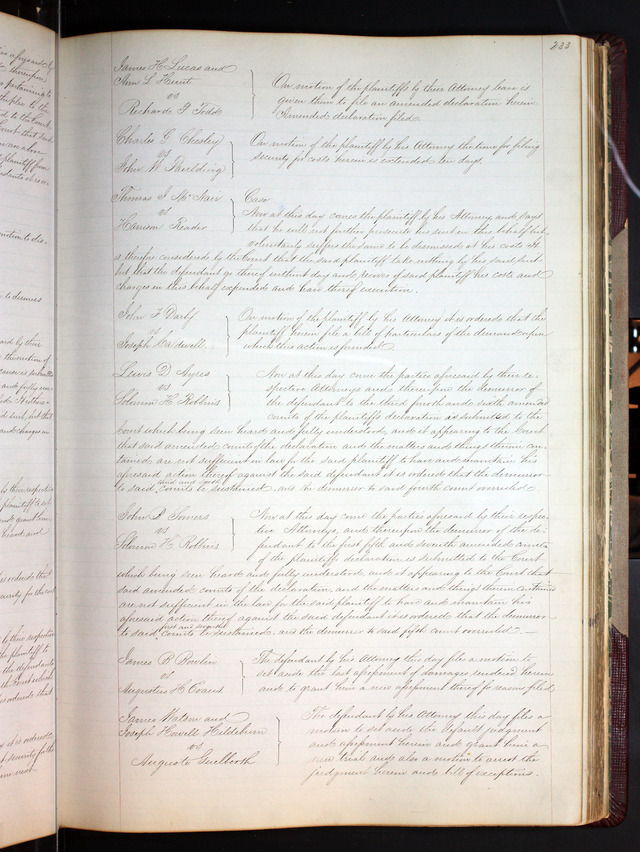 233
James H Lucas and
Ann L Hunt
vs
Richard F Todd
On motion of the plaintiffs by their Attorney leave is
given them to file an amended declaration herein
Amended declaration filed.
Charles G Chesley
vs
John W Paulding
On motion of the plaintiff by his Attorney the time for filing
security for costs herein is extended ten days.
Thomas J McNair
vs
Harrison Reader
Case
Now at this day comes the plaintiff by his Attorney and says
that he will not further prosecute his suit in this behalf but
voluntarily suffers the same to be dismissed at his costs It
is therefore considered by the Court that the said plaintiff take nothing by his said suit
but that the defendant go thereof without day and recover of said plaintiff his costs and
charges in this behalf expended and have thereof execution.
John F Darby
vs
Joseph Caldwell
On motion of the plaintiff by his Attorney it is ordered that the
plaintiff herein file a bill of particulars of the demand upon
which this action is founded
Lewis D Ayres
vs
Solomon H Robbins
Now at this day come the parties aforesaid by their re-
spective Attorneys and thereupon the demurrer of
the defendant to the third fourth and sixth amended
counts of the plaintiffs declaration is submitted to the
Court which being seen heard and fully understood, and it appearing to the Court
that said amended counts of the declaration and the matters and things therein con-
tained are not sufficient in law for the said plaintiff to have and maintain his
aforesaid action thereof against the said defendant it is ordered that the demurrer
third and sixth
to said counts be sustained, and the demurrer to said fourth count overruled.
John S Somers
vs
Solomon H Robbins
Now at this day come the parties aforesaid by their respec-
tive Attorneys and thereupon the demurrer of the de-
fendant to the first fifth and seventh amended counts
of the plaintiffs declaration is submitted to the Court
which being seen heard and fully understood, and it appearing to the Court that
said amended counts of the declaration, and the matters and things therein contained
are not sufficient in the law for the said plaintiff to have and maintain his
aforesaid action thereof against the said defendant it is ordered that the demurrer
first and seventh
to said counts be sustained, and the demurrer to said fifth count overruled. —
James B Bowlin
vs
Augustus H Evans
The defendant by his Attorney this day files a motion to
set aside the last assessment of damages rendered herein
and to grant him a new assessment thereof for reasons filed
James Watson and
Joseph Howell Hildeburn
vs
Auguste Guelberth
The defendant by his Attorney this day files a
motion to set aside the default judgment
and assessment herein and grant him a
new trial and also a motion to arrest the
judgment herein and bill of exceptions.